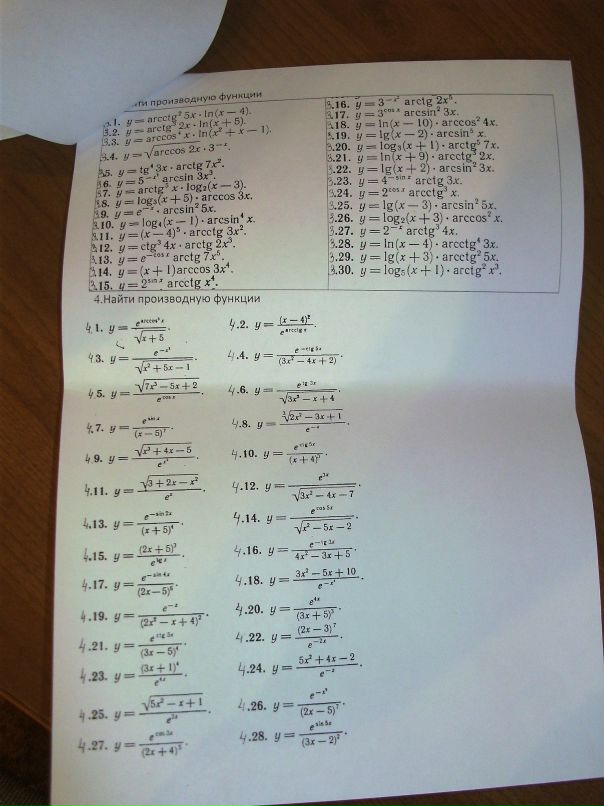 йти производную функции
3.1. y = arcctg² 5x · ln(x − 4).
3.2. y = arctg³ 2x · ln(x + 5).
3.3. y = arccos⁴ x · ln(x² + x − 1).
3.4. y = √(arccos 2x) · 3⁻ˣ.
3.5. y = tg⁴ 3x · arctg 7x².
3.6. y = 5^(−x²) arcsin 3x³.
3.7. y = arctg⁵ x · log₂(x − 3).
3.8. y = log₃(x + 5) · arccos 3x.
3.9. y = e⁻ˣ · arcsin² 5x.
3.10. y = log₄(x − 1) · arcsin⁴ x.
3.11. y = (x − 4)⁵ · arcctg 3x².
3.12. y = ctg³ 4x · arctg 2x³.
3.13. y = e^(−cos x) arctg 7x⁵.
3.14. y = (x + 1) arccos 3x⁴.
3.15. y = 2^(sin x) arcctg x⁴.
3.16. y = 3^(−x²) arctg 2x⁵.
3.17. y = 3^(cos x) arcsin² 3x.
3.18. y = ln(x − 10) · arccos² 4x.
3.19. y = lg(x − 2) · arcsin⁵ x.
3.20. y = log₃(x + 1) · arctg⁵ 7x.
3.21. y = ln(x + 9) · arcctg³ 2x.
3.22. y = lg(x + 2) · arcsin² 3x.
3.23. y = 4^(−sin x) arctg 3x.
3.24. y = 2^(cos x) arcctg³ x.
3.25. y = lg(x − 3) · arcsin² 5x.
3.26. y = log₂(x + 3) · arccos² x.
3.27. y = 2⁻ˣ · arctg³ 4x.
3.28. y = ln(x − 4) · arcctg⁴ 3x.
3.29. y = lg(x + 3) · arcctg² 5x.
3.30. y = log₅(x + 1) · arctg² x³.
4.Найти производную функции
4.1. y = e^(arccos³ x)/√(x + 5).
4.2. y = (x − 4)²/e^(arcctg x).
4.3. y = e^(−x²)/√(x² + 5x − 1).
4.4. y = e^(−ctg 5x)/(3x² − 4x + 2).
4.5. y = √(7x³ − 5x + 2)/e^(cos x).
4.6. y = e^(tg 3x)/√(3x² − x + 4).
4.7. y = e^(sin x)/(x − 5)⁷.
4.8. y = ∛(2x² − 3x + 1)/e⁻ˣ.
4.9. y = √(x² + 4x − 5)/e^(x³).
4.10. y = e^(ctg 5x)/(x + 4)³.
4.11. y = √(3 + 2x − x²)/eˣ.
4.12. y = e^(3x)/√(3x² − 4x − 7).
4.13. y = e^(−sin 2x)/(x + 5)⁴.
4.14. y = e^(cos 5x)/√(x² − 5x − 2).
4.15. y = (2x + 5)³/e^(tg x).
4.16. y = e^(−tg 3x)/4x² − 3x + 5.
4.17. y = e^(−sin 4x)/(2x − 5)⁶.
4.18. y = 3x² − 5x + 10/e^(−x⁴).
4.19. y = e⁻ˣ/(2x² − x + 4)².
4.20. y = e^(4x)/(3x + 5)³.
4.21. y = e^(ctg 5x)/(3x − 5)⁴.
4.22. y = (2x − 3)⁷/e^(−2x).
4.23. y = (3x + 1)⁴/e^(4x).
4.24. y = 5x² + 4x − 2/e⁻ˣ.
4.25. y = √(5x² − x + 1)/e^(3x).
4.26. y = e^(−x³)/(2x − 5)⁷.
4.27. y = e^(cos 3x)/(2x + 4)⁵.
4.28. y = e^(sin 5x)/(3x − 2)².